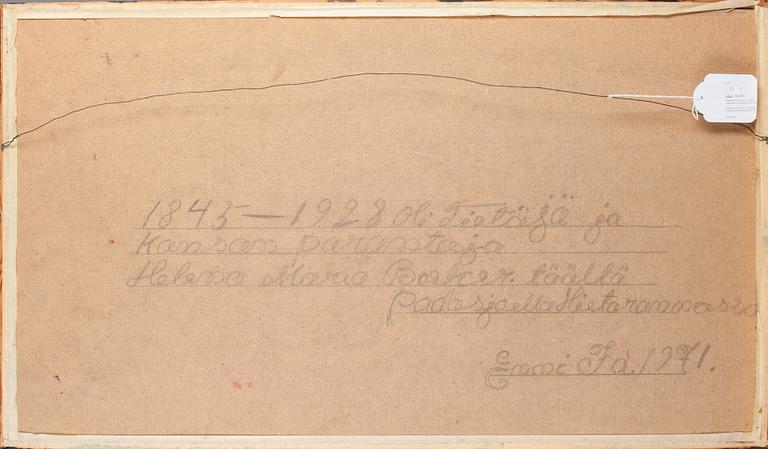 1845—1928 oli Tietäjä ja
Kansan parantaja
Helena Maria täällä
Padasjoella Hietarannassa
Enni Id. 1971.